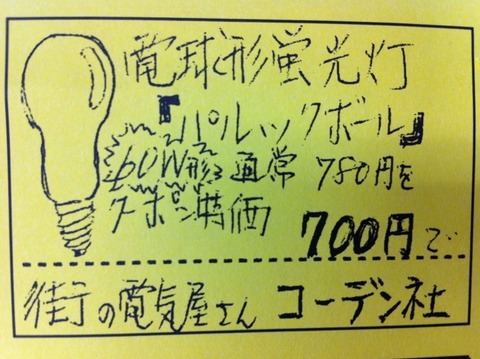 電球形蛍光灯
『パルックボール』
60W形 通常 780円を
クーポン特価 700円で
街の電気屋さん コーデン社